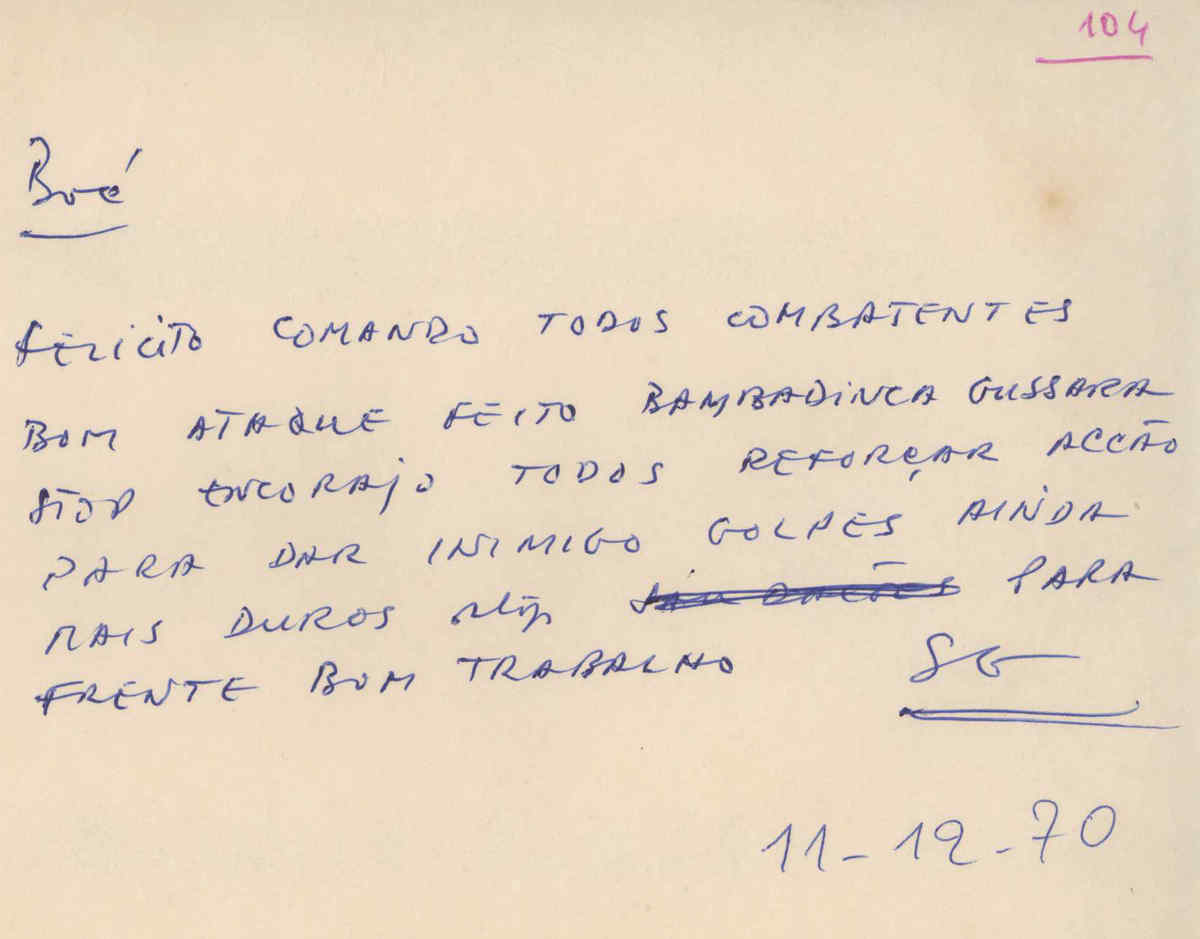 104
Boé
FELICITO COMANDO TODOS COMBATENTES
BOM ATAQUE FEITO BAMBADINCA GUSSARA
STOP ENCORAJO TODOS REFORÇAR ACCÃO
PARA DAR INIMIGO GOLPES AINDA
MAIS DUROS stop PARA
FRENTE BOM TRABALHO SG
11-12-70